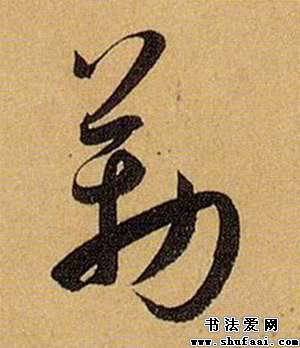 勒
书法爱网
www.shufaai.com